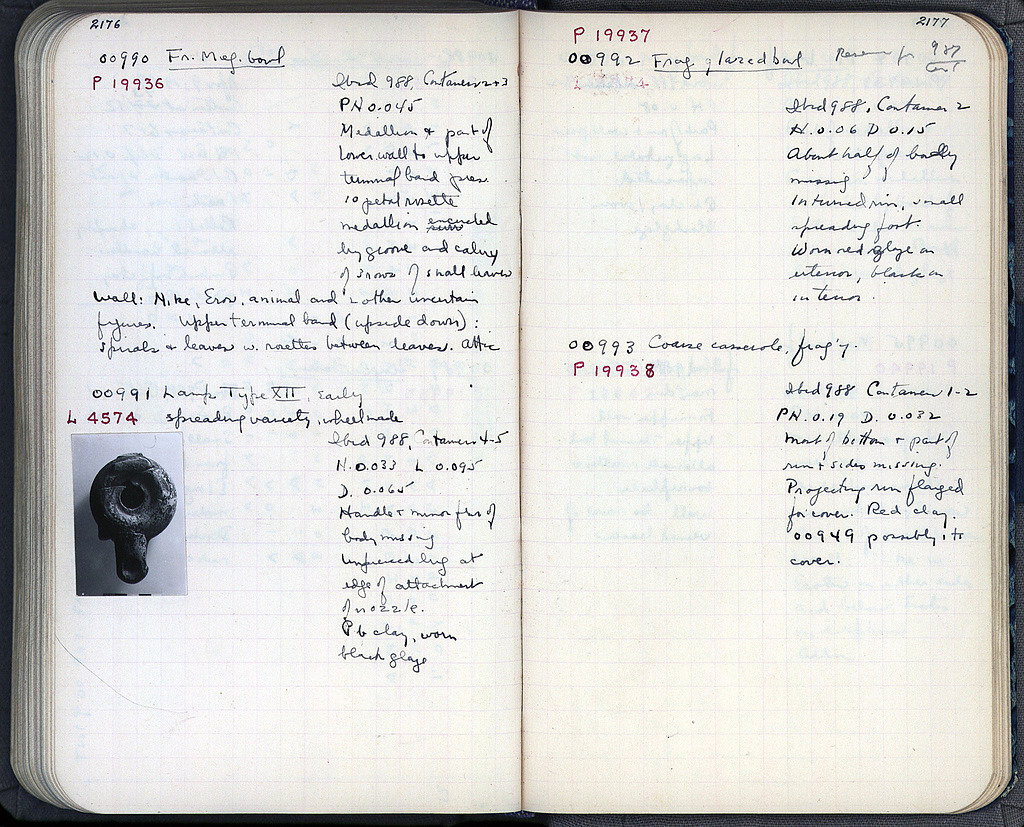 2176
OO990 Fr. Meg. bowl
P 19936
Ibid 988, Containers 2+3
PH 0.045
Medallion & part of
lower wall to upper
terminal band pres.
10 petal rosette
medallion encircled
by groove and calyx
of 3 rows of small leaves
Wall: Nike, Eros, animal and 2 other uncertain
figures. Upper terminal band (upside down):
spirals & leaves w. rosettes between leaves. Attic
OO991 Lamp Type XII, Early
L 4574 spreading variety, wheelmade
Ibid 988, Containers 4-5
H. 0.033 L 0.095
D. 0.065
Handle & minor frs of
body missing
Unpierced lug at
edge of attachment
of nozzle.
Pb clay, worn
black glaze
2177
P 19937
OO992 Frag. glazed bowl
987
Ibid 988, Container 2
H. 0.06 D 0.15
About half of body
missing
Inturned rim, small
spreading foot.
Worn red glaze on
exterior, black on
interior.
OO993 Coarse casserole, frag'y.
P 19938
Ibid 988 Container 1-2
PH. 0.19 D. 0.032
Most of bottom & part of
rim & sides missing.
Projecting rim flanged
for cover. Red clay.
OO949 possibly its
cover.